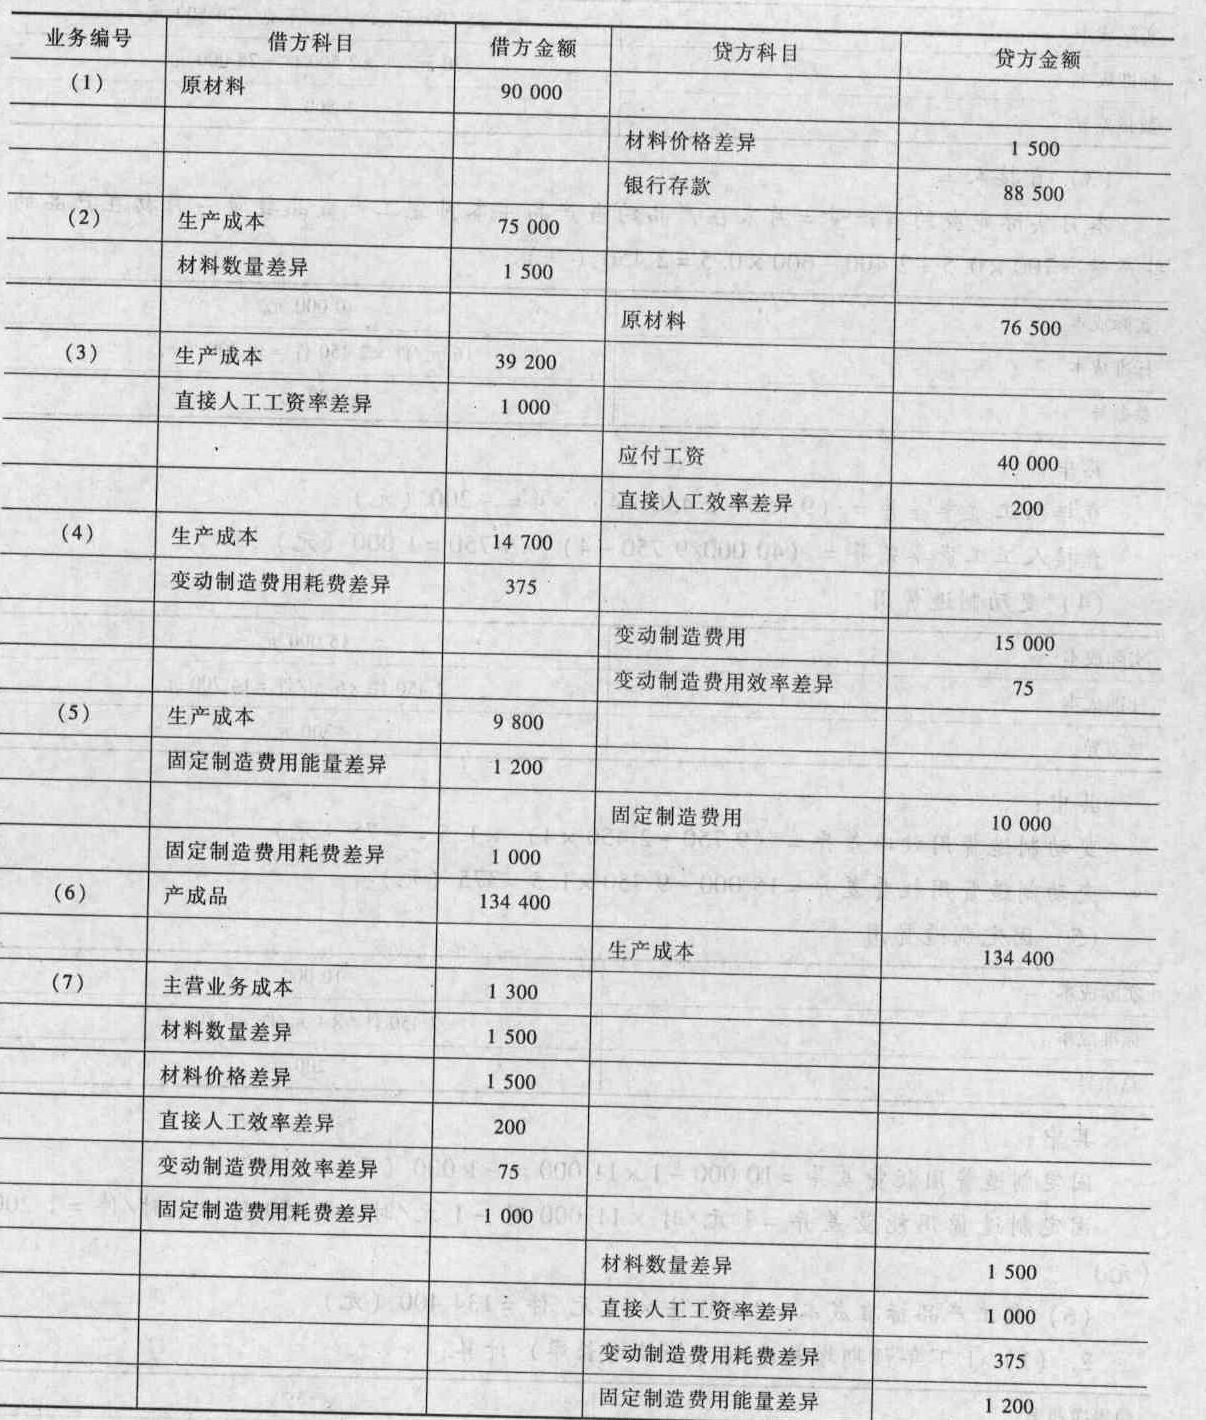 业务编号 借方科目 借方金额 贷方科目 贷方金额
(1) 原材料 90 000
材料价格差异 1 500
银行存款 88 500
(2) 生产成本 75 000
材料数量差异 1 500
原材料 76 500
(3) 生产成本 39 200
直接人工工资率差异 1 000
应付工资 40 000
直接人工效率差异 200
(4) 生产成本 14 700
变动制造费用耗费差异 375
变动制造费用 15 000
变动制造费用效率差异 75
(5) 生产成本 9 800
固定制造费用能量差异 1 200
固定制造费用 10 000
固定制造费用耗费差异 1 000
(6) 产成品 134 400
生产成本 134 400
(7) 主营业务成本 1 300
材料数量差异 1 500
材料价格差异 1 500
直接人工效率差异 200
变动制造费用效率差异 75
固定制造费用耗费差异 1 000
材料数量差异 1 500
直接人工工资率差异 1 000
变动制造费用耗费差异 375
固定制造费用能量差异 1 200